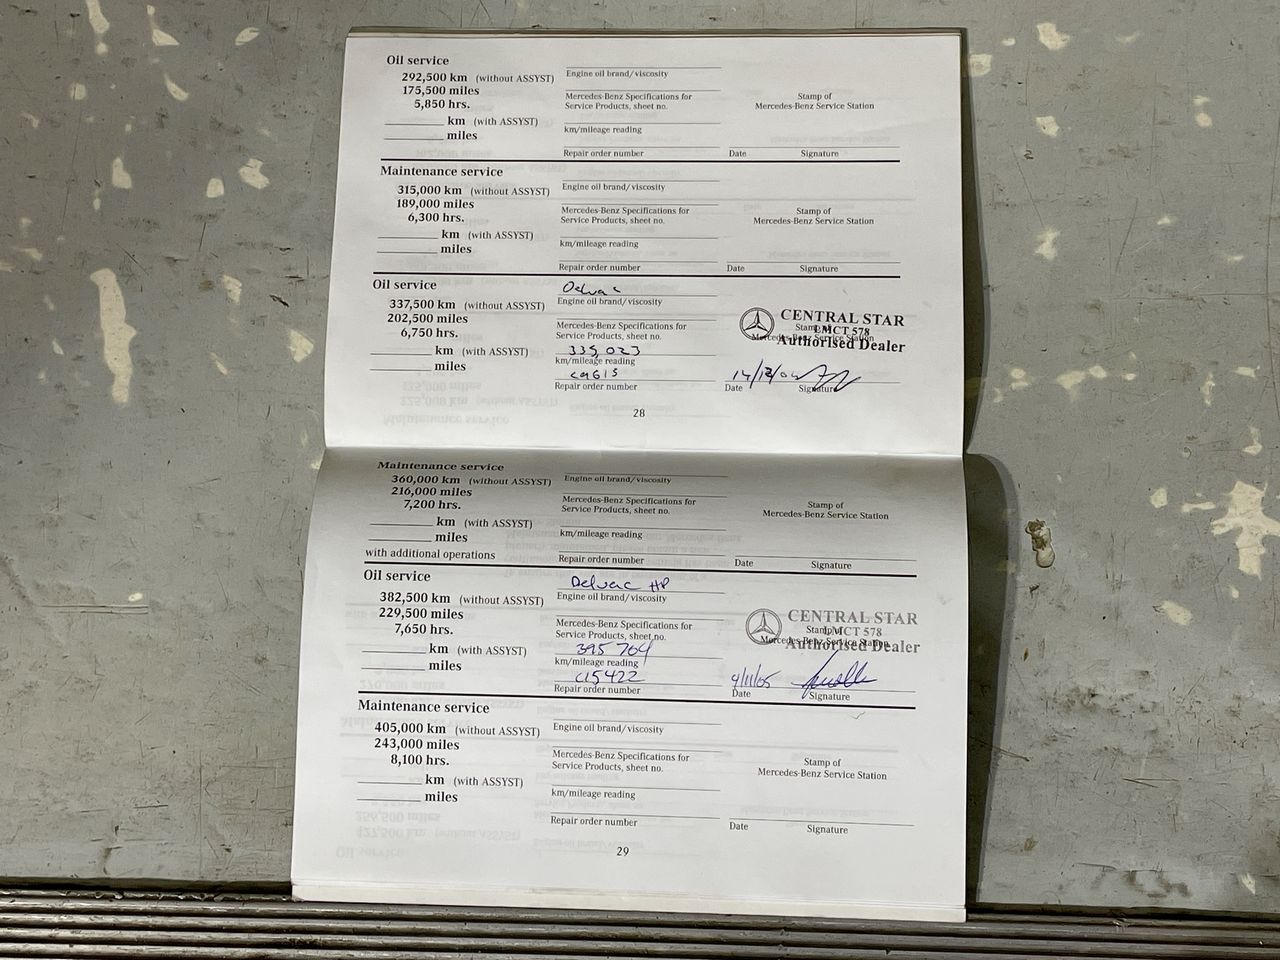 Oil service
292,500 km (without ASSYST)
175,500 miles
5,850 hrs.
km (with ASSYST)
miles
Engine oil brand/viscosity
Mercedes-Benz Specifications for
Service Products, sheet no.
km/mileage reading
Repair order number
Stamp of
Mercedes-Benz Service Station
Date Signature
Maintenance service
315,000 km (without ASSYST)
189,000 miles
6,300 hrs.
km (with ASSYST)
miles
Engine oil brand/viscosity
Mercedes-Benz Specifications for
Service Products, sheet no.
km/mileage reading
Repair order number
Stamp of
Mercedes-Benz Service Station
Date Signature
Oil service
337,500 km (without ASSYST)
202,500 miles
6,750 hrs.
km (with ASSYST)
miles
Engine oil brand/viscosity
Mercedes-Benz Specifications for
Service Products, sheet no.
335,023
km/mileage reading
Repair order number
CENTRAL STAR
LMCT 578
Authorised Dealer
Stamp of
Mercedes-Benz Service Station
Date Signature
28
Maintenance service
360,000 km (without ASSYST)
216,000 miles
7,200 hrs.
km (with ASSYST)
miles
with additional operations
Engine oil brand/viscosity
Mercedes-Benz Specifications for
Service Products, sheet no.
km/mileage reading
Repair order number
Stamp of
Mercedes-Benz Service Station
Date Signature
Oil service
382,500 km (without ASSYST)
229,500 miles
7,650 hrs.
km (with ASSYST)
miles
Delvac HP
Engine oil brand/viscosity
Mercedes-Benz Specifications for
Service Products, sheet no.
395 704
km/mileage reading
C15422
Repair order number
CENTRAL STAR
LMCT 578
Authorised Dealer
Stamp of
Mercedes-Benz Service Station
4/11/05
Date Signature
Maintenance service
405,000 km (without ASSYST)
243,000 miles
8,100 hrs.
km (with ASSYST)
miles
Engine oil brand/viscosity
Mercedes-Benz Specifications for
Service Products, sheet no.
km/mileage reading
Repair order number
Stamp of
Mercedes-Benz Service Station
Date Signature
29